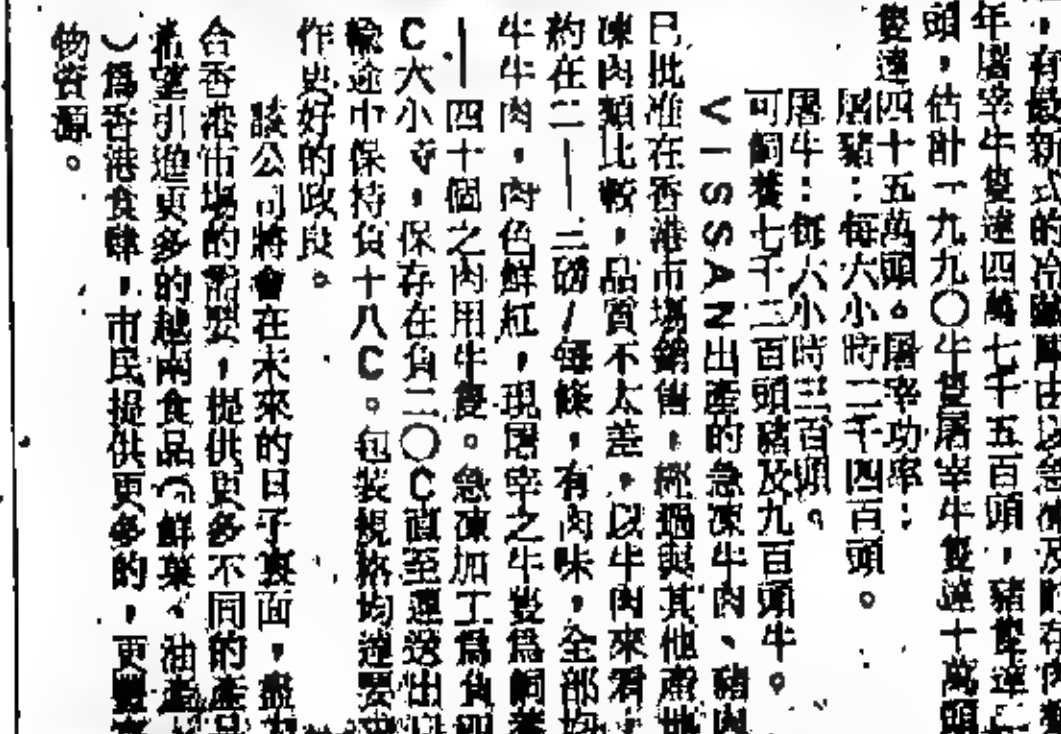 ，有最新式的冷藏庫由以急凍及貯存肉類
年屠宰牛隻達四萬七千五百頭，豬隻達二
頭，估計一九九〇牛隻屠宰牛隻達十萬頭
隻達四十五萬頭。屠宰功率：
屠豬：每六小時二千四百頭。
屠牛：每六小時三百頭。
可飼養七千二百頭豬及九百頭牛。
VISSAN出產的急凍牛肉、豬肉
已批准在香港市場銷售，經過與其他產地
凍肉類比較，品質不太差，以牛肉來看，
約在二｜三磅/每條，有肉味，全部均
牛牛肉，肉色鮮紅，現屠宰之牛隻為飼養
｜四十個之內用牛隻。急凍加工為負四
C大小等，保存在負二〇C直至運送出口
輸途中保持負十八C。包裝規格均遵要求
作更好的政良。
該公司將會在未來的日子裏面，盡力
合香港市場的需要，提供更多不同的產品
希望引進更多的越南食品（鮮菜、油
）為香港食肆，市民提供更多的，更豐富
物資源。